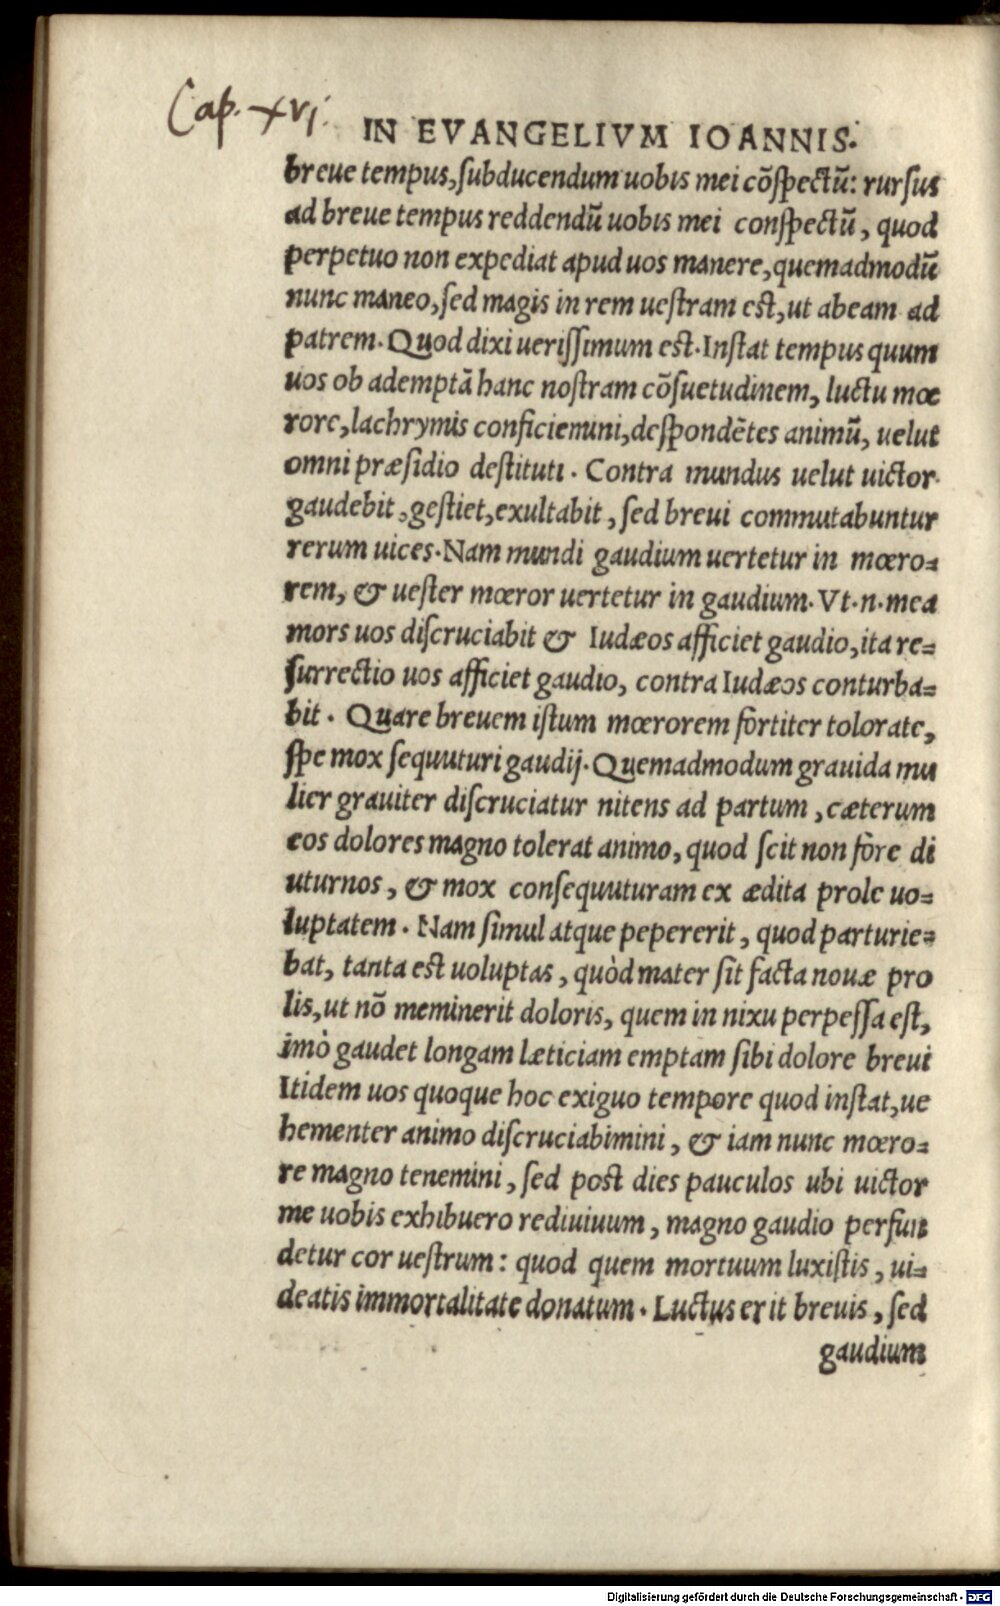 Cap. xvj.
IN EVANGELIVM IOANNIS.
breue tempus, subducendum uobis mei cõspectũ: rursus
ad breue tempus reddendũ uobis mei conspectũ, quod
perpetuo non expediat apud uos manere, quemadmodũ
nunc maneo, sed magis in rem uestram est, ut abeam ad
patrem. Quod dixi uerissimum est. Instat tempus quum
uos ob ademptã hanc nostram cõsuetudinem, luctu mœ
rore, lachrymis conficiemini, despondẽtes animũ, uelut
omni præsidio destituti. Contra mundus uelut uictor
gaudebit, gestiet, exultabit, sed breui commutabuntur
rerum uices. Nam mundi gaudium uertetur in mœro=
rem, & uester mœror uertetur in gaudium. Vt.n.mea
mors uos discruciabit & Iudæos afficiet gaudio, ita re=
surrectio uos afficiet gaudio, contra Iudæos conturba=
bit. Quare breuem istum mœrorem fortiter tolorate,
spe mox sequuturi gaudij. Quemadmodum grauida mu
lier grauiter discruciatur nitens ad partum, cæterum
eos dolores magno tolerat animo, quod scit non fore di
uturnos, & mox consequuturam ex ædita prole uo=
luptatem. Nam simul atque pepererit, quod parturie=
bat, tanta est uoluptas, quòd mater sit facta nouæ pro
lis, ut nõ meminerit doloris, quem in nixu perpessa est,
imò gaudet longam læticiam emptam sibi dolore breui
Itidem uos quoque hoc exiguo tempore quod instat, ue
hementer animo discruciabimini, & iam nunc mœro=
re magno tenemini, sed post dies pauculos ubi uictor
me uobis exhibuero rediuiuum, magno gaudio perfun
detur cor uestrum: quod quem mortuum luxistis, ui=
deatis immortalitate donatum. Luctus erit breuis, sed
gaudium
Digitalisierung gefördert durch die Deutsche Forschungsgemeinschaft - DFG